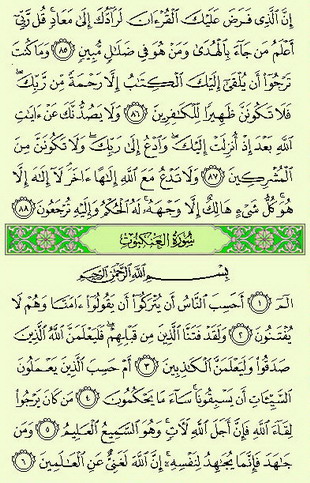 إِنَّ ٱلَّذِى فَرَضَ عَلَيْكَ ٱلْقُرْءَانَ لَرَآدُّكَ إِلَىٰ مَعَادٍ ۚ قُل رَّبِّىٓ
أَعْلَمُ مَن جَآءَ بِٱلْهُدَىٰ وَمَنْ هُوَ فِى ضَلَـٰلٍ مُّبِينٍ ٨٥ وَمَا كُنتَ
تَرْجُوٓا۟ أَن يُلْقَىٰٓ إِلَيْكَ ٱلْكِتَـٰبُ إِلَّا رَحْمَةً مِّن رَّبِّكَ ۖ
فَلَا تَكُونَنَّ ظَهِيرًا لِّلْكَـٰفِرِينَ ٨٦ وَلَا يَصُدُّنَّكَ عَنْ ءَايَـٰتِ
ٱللَّهِ بَعْدَ إِذْ أُنزِلَتْ إِلَيْكَ ۖ وَٱدْعُ إِلَىٰ رَبِّكَ ۖ وَلَا تَكُونَنَّ مِنَ
ٱلْمُشْرِكِينَ ٨٧ وَلَا تَدْعُ مَعَ ٱللَّهِ إِلَـٰهًا ءَاخَرَ ۘ لَآ إِلَـٰهَ إِلَّا
هُوَ ۚ كُلُّ شَىْءٍ هَالِكٌ إِلَّا وَجْهَهُۥ ۚ لَهُ ٱلْحُكْمُ وَإِلَيْهِ تُرْجَعُونَ ٨٨
سُورَةُ العَنكَبُوتِ
بِسْمِ ٱللَّهِ ٱلرَّحْمَـٰنِ ٱلرَّحِيمِ
الٓمٓ ١ أَحَسِبَ ٱلنَّاسُ أَن يُتْرَكُوٓا۟ أَن يَقُولُوٓا۟ ءَامَنَّا وَهُمْ لَا
يُفْتَنُونَ ٢ وَلَقَدْ فَتَنَّا ٱلَّذِينَ مِن قَبْلِهِمْ ۖ فَلَيَعْلَمَنَّ ٱللَّهُ ٱلَّذِينَ
صَدَقُوا۟ وَلَيَعْلَمَنَّ ٱلْكَـٰذِبِينَ ٣ أَمْ حَسِبَ ٱلَّذِينَ يَعْمَلُونَ
ٱلسَّيِّـَٔاتِ أَن يَسْبِقُونَا ۚ سَآءَ مَا يَحْكُمُونَ ٤ مَن كَانَ يَرْجُوا۟
لِقَآءَ ٱللَّهِ فَإِنَّ أَجَلَ ٱللَّهِ لَـَٔاتٍ ۚ وَهُوَ ٱلسَّمِيعُ ٱلْعَلِيمُ ٥ وَمَن
جَـٰهَدَ فَإِنَّمَا يُجَـٰهِدُ لِنَفْسِهِۦٓ ۚ إِنَّ ٱللَّهَ لَغَنِىٌّ عَنِ ٱلْعَـٰلَمِينَ ٦